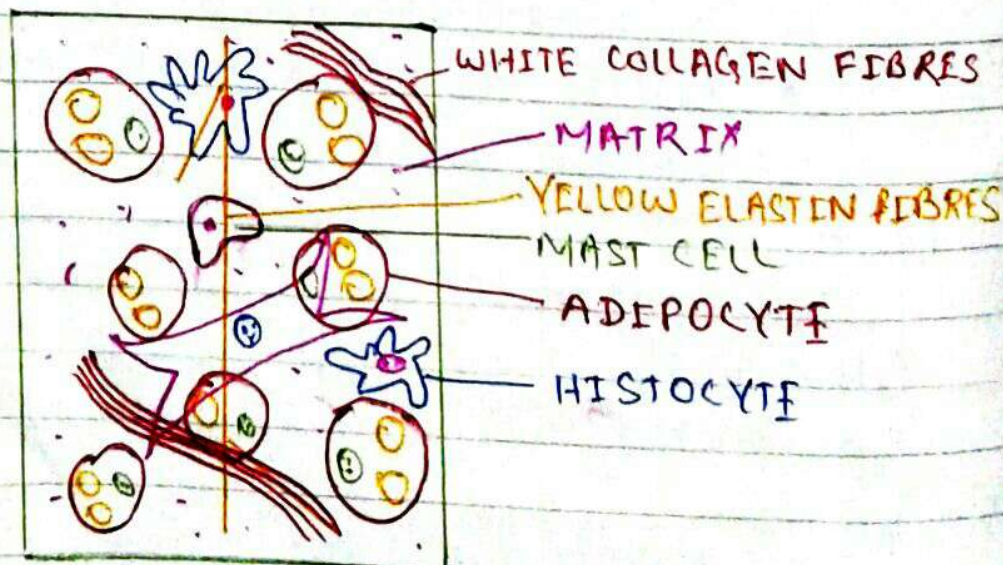 WHITE COLLAGEN FIBRES
MATRIX
YELLOW ELASTIN FIBRES
MAST CELL
ADIPOCYTE
HISTOCYTE